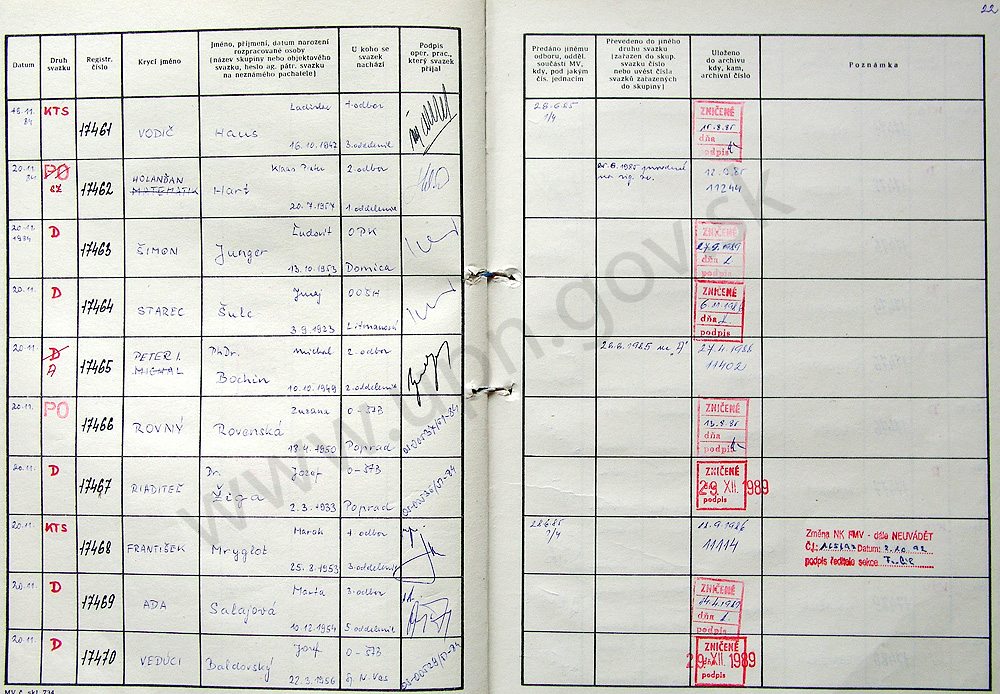 22
Datum
Druh svazku
Registr. číslo
Krycí jméno
Jméno, příjmení, datum narození rozpracované osoby (název skupiny nebo objektového svazku, heslo ag. pátr. svazku na neznámého pachatele)
U koho se svazek nachází
Podpis oper. prac., který svazek přijal
Předáno jinému odboru, odděl. součásti MV, kdy, pod jakým čís. jednacím
Převedeno do jiného druhu svazku (zařazen do skup. svazku číslo nebo uvést čísla svazků zařazených do skupiny)
Uloženo do archivu kdy, kam, archivní číslo
Poznámka
KTS
17461
VODIČ
Ladislav
Haus
16.10.1942
1. odbor
3. oddelenie
28.6.85
1/4
ZNIČENÉ
dňa
podpis
20.11.
PO
17462
HOLANĎAN
MATEMATIK
Klaus Pieter
Hart
20.7.1957
2. odbor
1. oddelenie
1985
11244
20.11.
1984
D
17463
ŠIMON
Ľudovít
Junger
13.10.1953
OPK
Domica
ZNIČENÉ
dňa
podpis
20.11.
D
17464
STAREC
Juraj
Šulc
3.9.1923
OOŠH
ZNIČENÉ
6.11.1986
dňa
podpis
20.11.
D
A
17465
PETER I.
MICHAL
PhDr. Michal
Bochin
10.10.1949
2. odbor
2. oddelenie
26.6.1985 na „A"
27.4.1986
11402
20.11.
PO
17466
ROVNÝ
Zuzana
Rovenská
18.4.1950
O-ŠTB
Poprad
ZNIČENÉ
dňa
podpis
20.11.
D
17467
RIADITEĽ
Dr. Jozef
Žiga
2.3.1933
O-ŠTB
Poprad
ZNIČENÉ
29. XII. 1989
podpis
20.11.
KTS
17468
FRANTIŠEK
Marek
Mryglot
25.8.1953
1. odbor
3. oddelenie
28.6.85
1/4
18.9.1986
11114
Změna NK FMV - dále NEUVÁDĚT
Č.j.: Datum: 2.10.92
podpis ředitele sekce
20.11.
D
17469
ADA
Marta
Salajová
10.12.1954
3. odbor
5. oddelenie
ZNIČENÉ
dňa
podpis
20.11.
D
17470
VEDÚCI
Jozef
Baldovský
22.3.1956
O-ŠTB
Sp. N. Ves
ZNIČENÉ
29. XII. 1989
podpis
MV č. skl. 734
www.upn.gov.sk